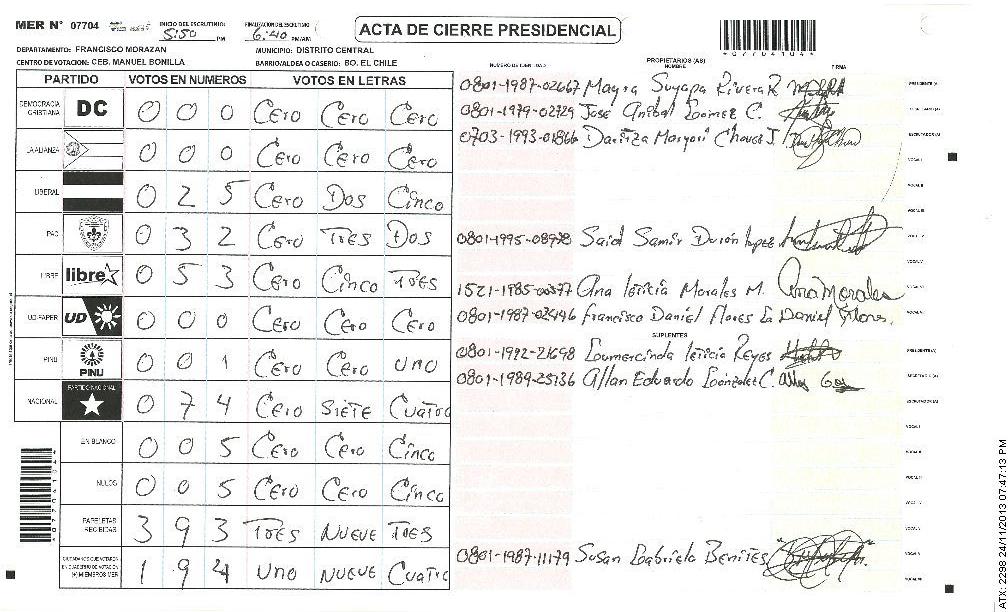 MER N° 07704 INICIO DEL ESCRUTINIO: 5:50 PM FINALIZACION DEL ESCRUTINIO 6:40 PM/AM
ACTA DE CIERRE PRESIDENCIAL
07704104
DEPARTAMENTO: FRANCISCO MORAZAN MUNICIPIO: DISTRITO CENTRAL
CENTRO DE VOTACION: CEB. MANUEL BONILLA BARRIO/ALDEA O CASERIO: BO. EL CHILE
PARTIDO VOTOS EN NUMEROS VOTOS EN LETRAS
DEMOCRACIA CRISTIANA DC 0 0 0 Cero Cero Cero
LA ALIANZA 0 0 0 Cero Cero Cero
LIBERAL 0 2 5 Cero Dos Cinco
PAC 0 3 2 Cero Tres Dos
LIBRE libre 0 5 3 Cero Cinco Tres
UD-FAPER UD 0 0 0 Cero Cero Cero
PINU PINU 0 0 1 Cero Cero uno
NACIONAL PARTIDO NACIONAL 0 7 4 Cero Siete Cuatro
EN BLANCO 0 0 5 Cero Cero Cinco
NULOS 0 0 5 Cero Cero Cinco
PAPELETAS RECIBIDAS 3 9 3 Tres Nueve Tres
CIUDADANOS QUE VOTARON EN CUADERNO DE VOTACION (+) MIEMBROS MER 1 9 4 uno Nueve Cuatro
NUMERO DE IDENTIDAD PROPIETARIOS (AS) NOMBRE FIRMA
0801-1987-02667 Mayra Suyapa Rivera R. PRESIDENTE (A)
0801-1979-02729 Jose Anibal Gomez C. SECRETARIO (A)
0703-1993-01866 Daritza Maryori Chavez J. ESCRUTADOR (A)
VOCAL I
VOCAL II
VOCAL III
0801-1995-08978 Said Samir Durón Lopez
VOCAL V
1521-1985-00377 Ana leticia Morales M. Ana Morales
0801-1987-02446 Francisco Daniel Flores Daniel Flores.
SUPLENTES
0801-1992-21698 Gumercinda leticia Reyes PRESIDENTE (A)
0801-1989-25736 Allan Eduardo Gonzalez C. SECRETARIO (A)
ESCRUTADOR (A)
VOCAL I
0801-1987-11179 Susan Gabriela Benites
ATX: 2298 24/11/2013 07:47:13 PM